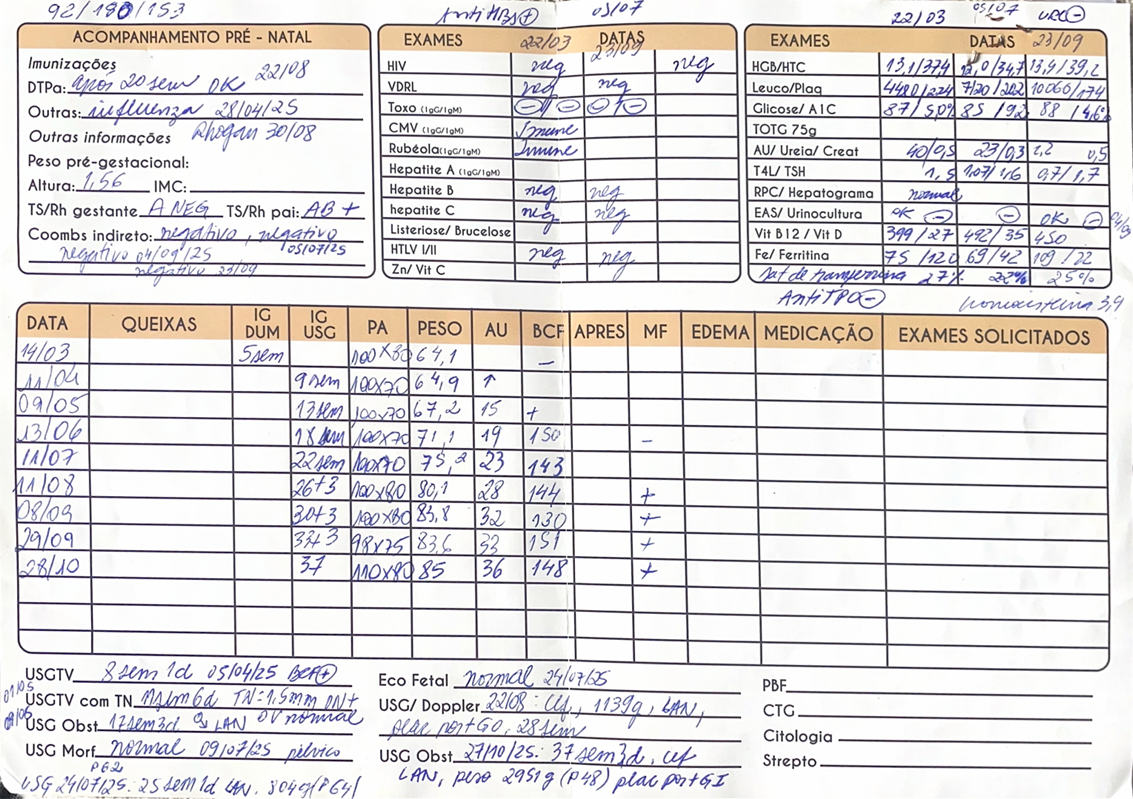 92/180/153
ACOMPANHAMENTO PRÉ - NATAL
Imunizações
DTPa: após 20sem OK 22/08
Outras: influenza 28/04/25
Outras informações Rhogan 30/08
Peso pré-gestacional:
Altura: 1,56 IMC:
TS/Rh gestante A NEG TS/Rh pai: AB +
Coombs indireto: negativo, negativo
05/07/25
negativo 04/09/25
negativo 23/09
Anti HBS +
05/07
EXAMES 22/03 DATAS 23/09
HIV neg neg neg
VDRL neg neg
Toxo (IgG/IgM) - - - -
CMV (IgG/IgM) Imune
Rubéola (IgG/IgM) Imune
Hepatite A (IgG/IgM)
Hepatite B neg neg
hepatite C neg neg
Listeriose/ Brucelose
HTLV I/II neg neg
Zn/ Vit C
22/03 05/07 URC -
EXAMES DATAS 23/09
HGB/HTC 13,1/37,4 12,0/34,7 13,4/39,2
Leuco/Plaq 4480/224 7120/202 10060/174
Glicose/ A1C 87/5,0% 85 88 /4,6%
TOTG 75g
AU/ Ureia/ Creat 40/0,5 23/0,3 2,2 0,5
T4L/ TSH 1,5 1,07/1,6 0,7/1,7
RPC/ Hepatograma normal
EAS/ Urinocultura OK - - OK -
Vit B12 / Vit D 399/27 492/35 450
Fe/ Ferritina 75/120 69/42 109/22
Sat de transferrina 27% 22% 25%
Anti TPO -
homocisteina 3,9
DATA QUEIXAS IG DUM IG USG PA PESO AU BCF APRES MF EDEMA MEDICAÇÃO EXAMES SOLICITADOS
14/03 5sem 100x80 64,1 -
11/04 9sem 100x70 64,9 ↑
09/05 13sem 100x70 67,2 15 +
13/06 18sem 100x70 71,1 19 150 -
11/07 22sem 100x70 75,2 23 143
11/08 26+3 100x80 80,1 28 144 +
08/09 30+3 100x80 83,8 32 130 +
29/09 33+3 98x75 83,6 33 151 +
28/10 37 110x80 85 36 148 +
USGTV 8sem 1d 05/04/25 BCF+
USGTV com TN 11sem6d TN=1,5mm ON+
USG Obst 17sem3d LAN DV normal
USG Morf normal 09/07/25 pélvico
P62
USG 24/07/25: 25sem1d LAN, 804g (P64)
Eco Fetal normal 24/07/25
USG/ Doppler 22/08: cef, 1139g, LAN,
plac post G0, 28sem
USG Obst 27/10/25: 37sem3d, cef
LAN, peso 2951g (P48) plac post GI
PBF
CTG
Citologia
Strepto